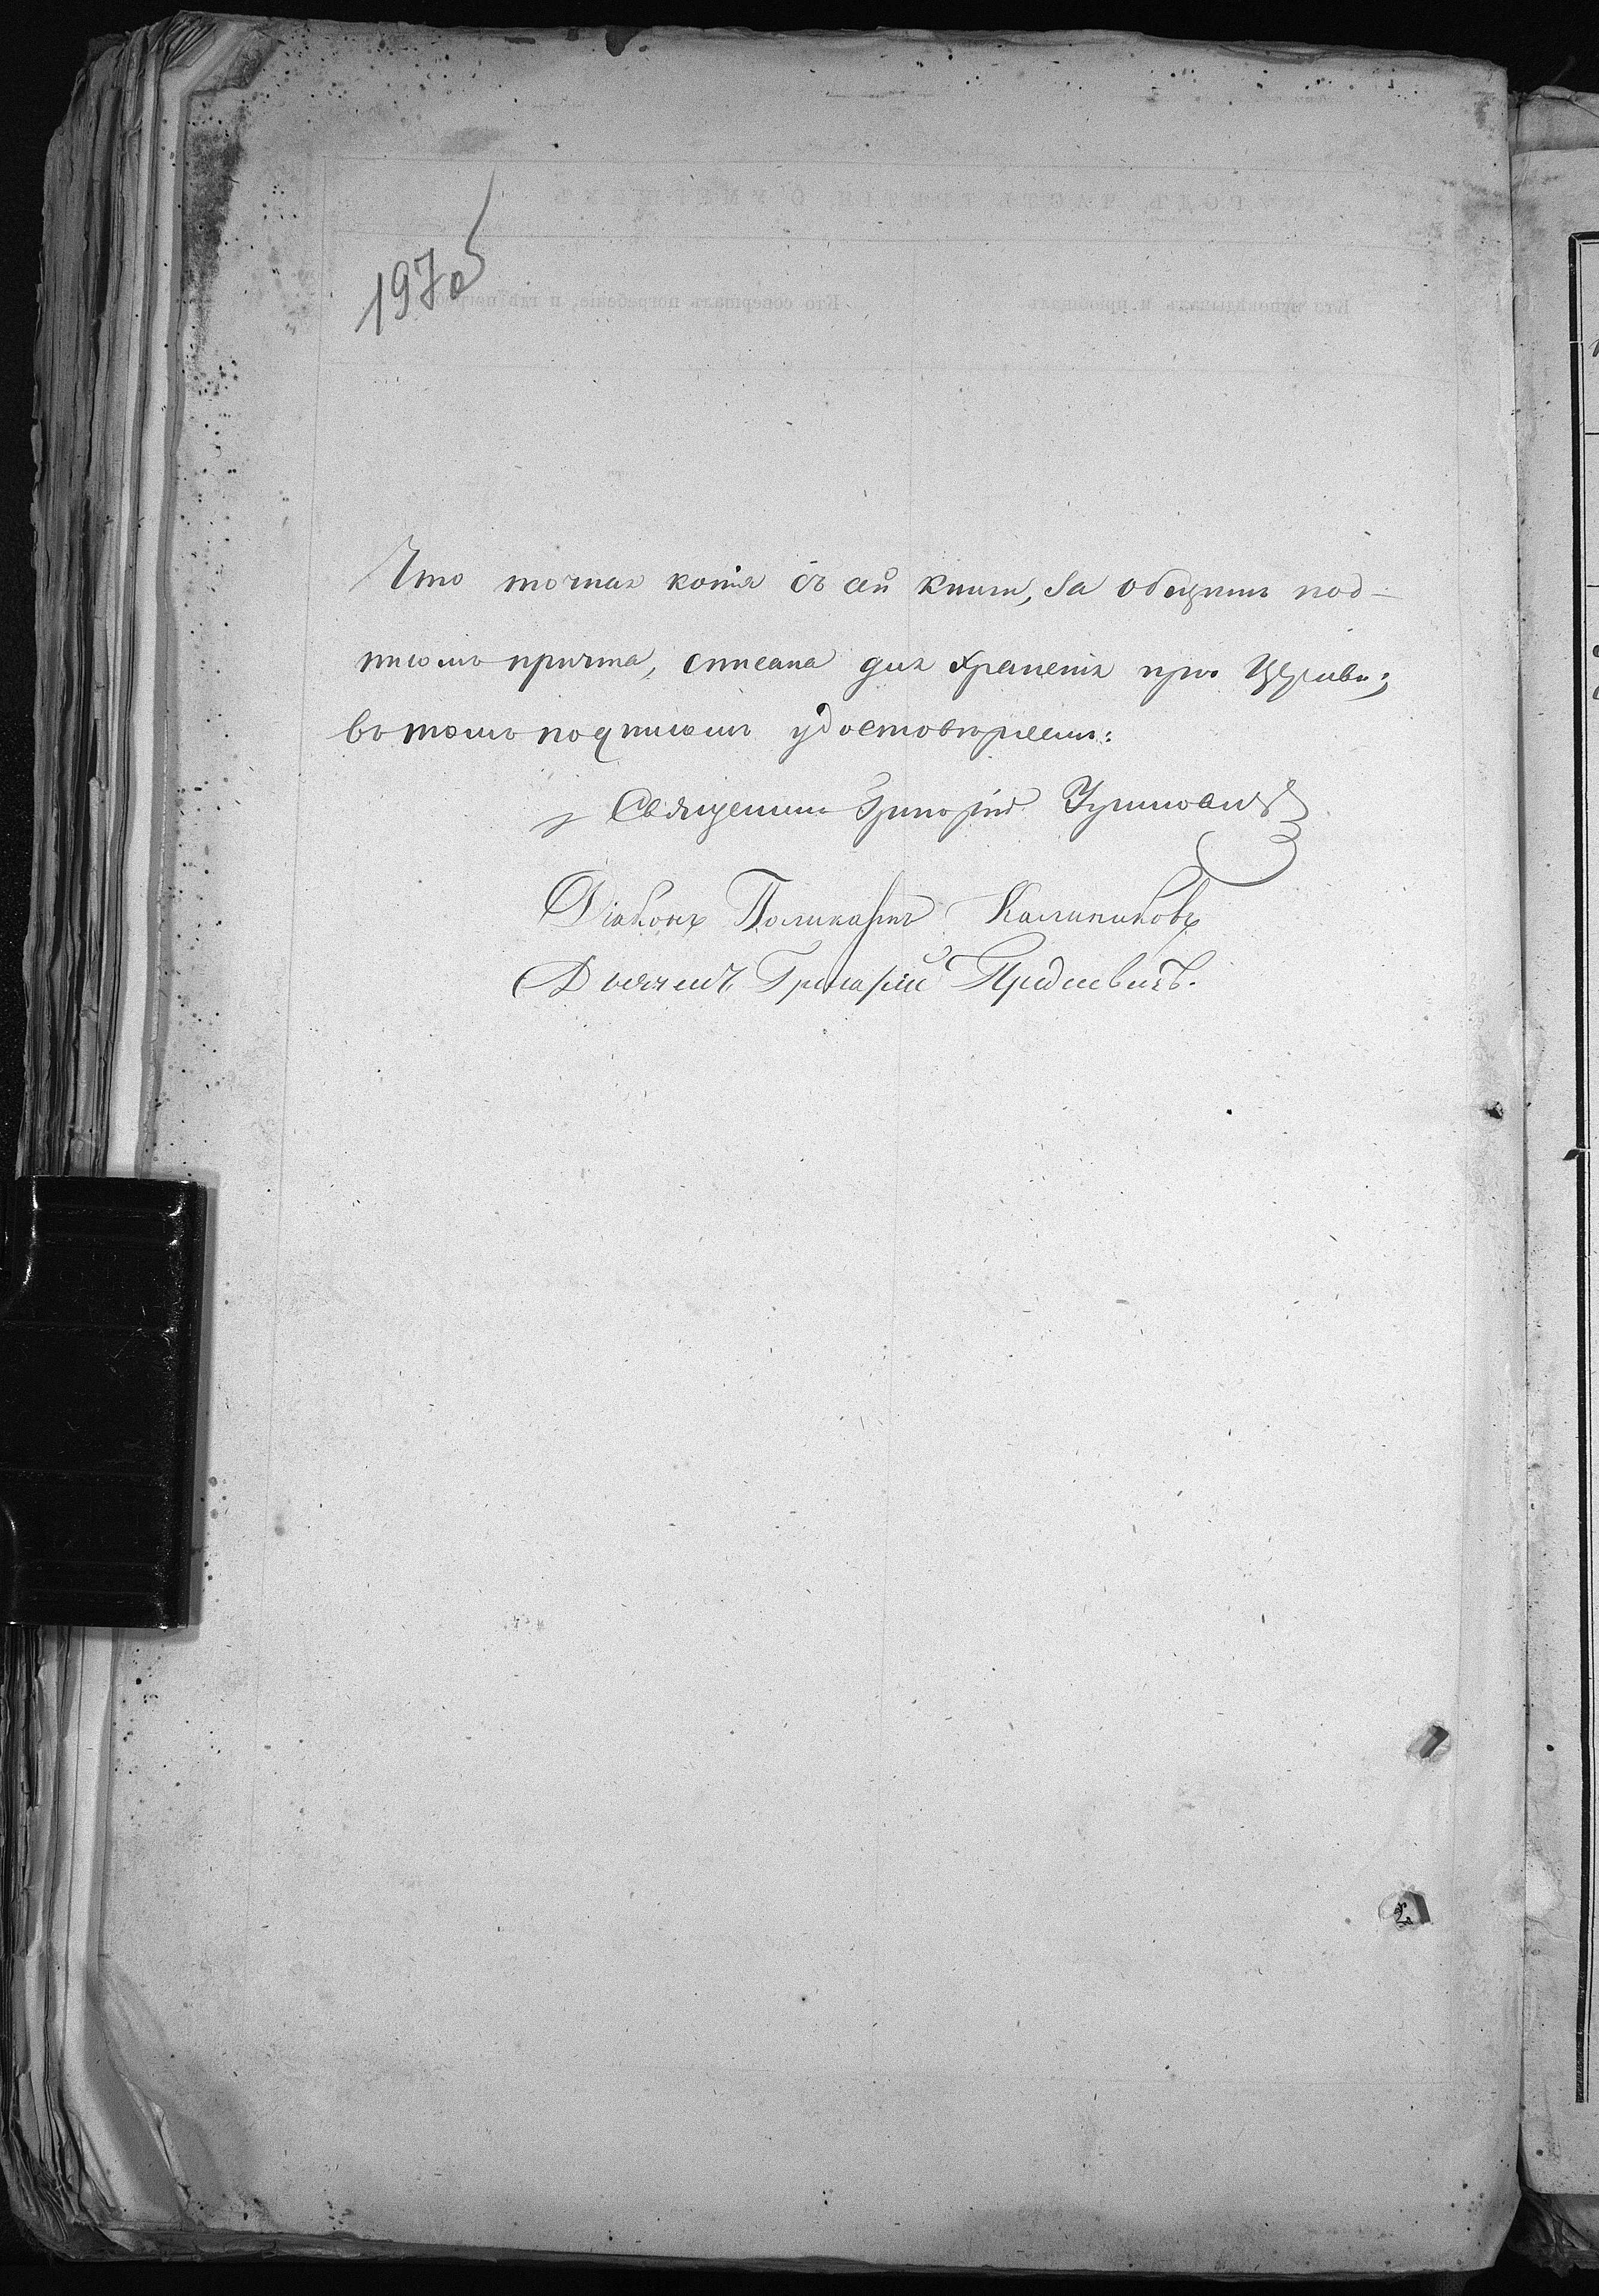 197 об
Что точная копія съ сей книги, за общимъ под-
писомъ причта, списана для храненія при Церкви;
въ томъ подписомъ удостовѣряемъ:
Священникъ Григорій
Діаконъ Поликарпъ Калинниковъ
Дьячекъ Григорій